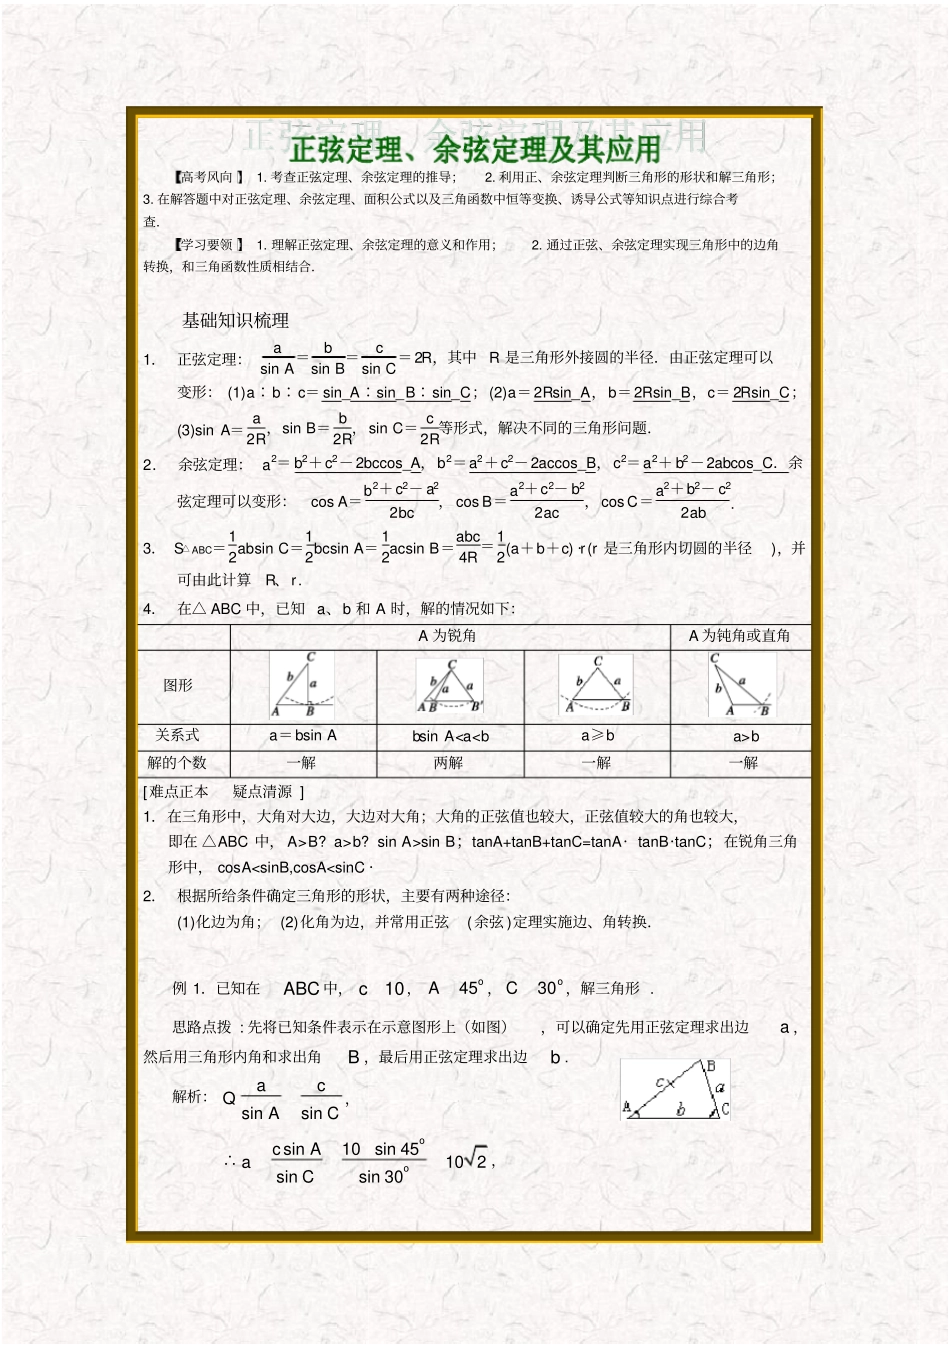 正弦定理、余弦定理及其应用
【高考风向】 1. 考查正弦定理、余弦定理的推导； 2. 利用正、余弦定理判断三角形的形状和解三角形；
3. 在解答题中对正弦定理、余弦定理、面积公式以及三角函数中恒等变换、诱导公式等知识点进行综合考
查．
【学习要领】 1. 理解正弦定理、余弦定理的意义和作用； 2. 通过正弦、余弦定理实现三角形中的边角
转换，和三角函数性质相结合．
基础知识梳理
1. 正弦定理： a/sin A＝b/sin B＝c/sin C＝2R，其中 R 是三角形外接圆的半径．由正弦定理可以
变形： (1)a∶b∶c＝sin_A∶sin_B∶sin_C；(2)a＝2Rsin_A，b＝2Rsin_B，c＝2Rsin_C；
(3)sin A＝a/2R，sin B＝b/2R，sin C＝c/2R等形式，解决不同的三角形问题．
2. 余弦定理： a²＝b²＋c²－2bccos_A，b²＝a²＋c²－2accos_B，c²＝a²＋b²－2abcos_C．余
弦定理可以变形： cos A＝b²＋c²－a²/2bc，cos B＝a²＋c²－b²/2ac，cos C＝a²＋b²－c²/2ab．
3. S△ABC＝1/2absin C＝1/2bcsin A＝1/2acsin B＝abc/4R＝1/2(a＋b＋c)·r(r 是三角形内切圆的半径 )，并
可由此计算 R、r．
4. 在△ABC 中，已知 a、b 和 A 时，解的情况如下：
A 为锐角 A 为钝角或直角
图形
C b a A B
C b a a A B B′
C b a A B
C b a A B
关系式 a＝bsin A bsin A<a<b a≥b a>b
解的个数 一解 两解 一解 一解
[难点正本 疑点清源 ]
1．在三角形中，大角对大边，大边对大角；大角的正弦值也较大，正弦值较大的角也较大，
即在 △ABC 中， A>B? a>b? sin A>sin B；tanA+tanB+tanC=tanA·tanB·tanC；在锐角三角
形中， cosA<sinB,cosA<sinC·
2. 根据所给条件确定三角形的形状，主要有两种途径：
(1)化边为角； (2)化角为边，并常用正弦 (余弦)定理实施边、角转换．
例 1．已知在 ABC 中， c 10，A 45°，C 30°，解三角形 .
思路点拨 : 先将已知条件表示在示意图形上（如图） ，可以确定先用正弦定理求出边 a，
然后用三角形内角和求出角 B，最后用正弦定理求出边 b.
A B C a b c
解析： Q a/sin A c/sin C，
∴ a csin A/sin C 10 sin 45°/sin 30° 10√2，